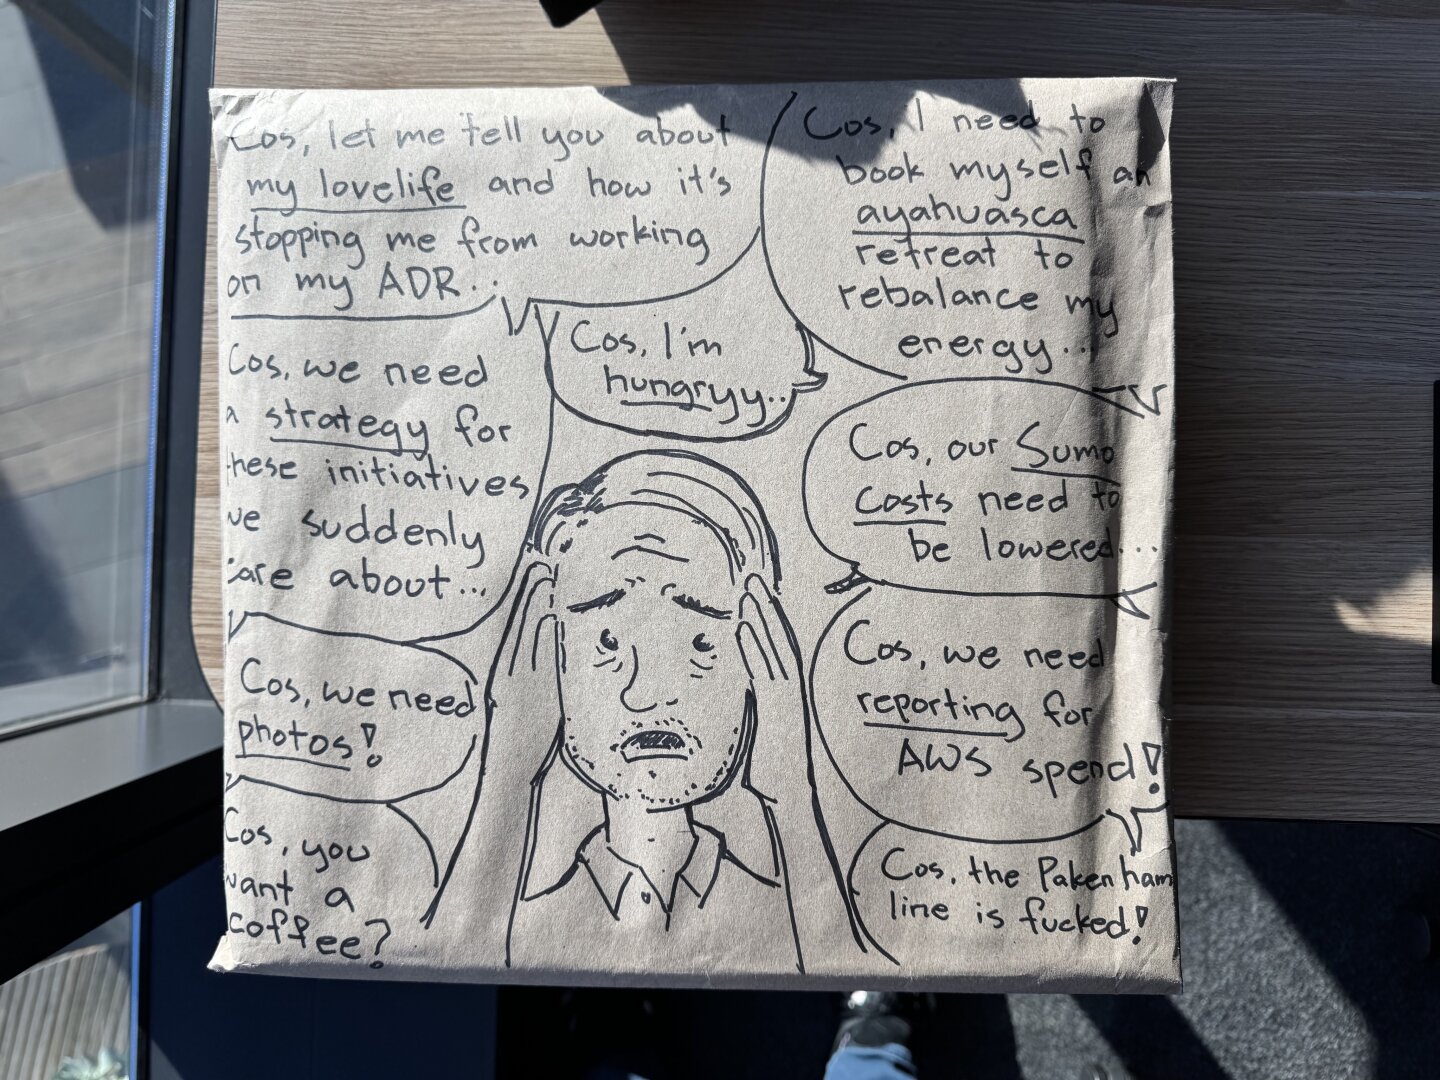 Cos, let me tell you about
my lovelife and how it's
stopping me from working
on my ADR..
Cos, I need to
book myself an
ayahuasca
retreat to
rebalance my
energy...
Cos, I'm
hungryy..
Cos, we need
a strategy for
these initiatives
we suddenly
care about...
Cos, our Sumo
costs need to
be lowered...
Cos, we need
photos!
Cos, we need
reporting for
AWS spend!
Cos, you
want a
coffee?
Cos, the Pakenham
line is fucked!